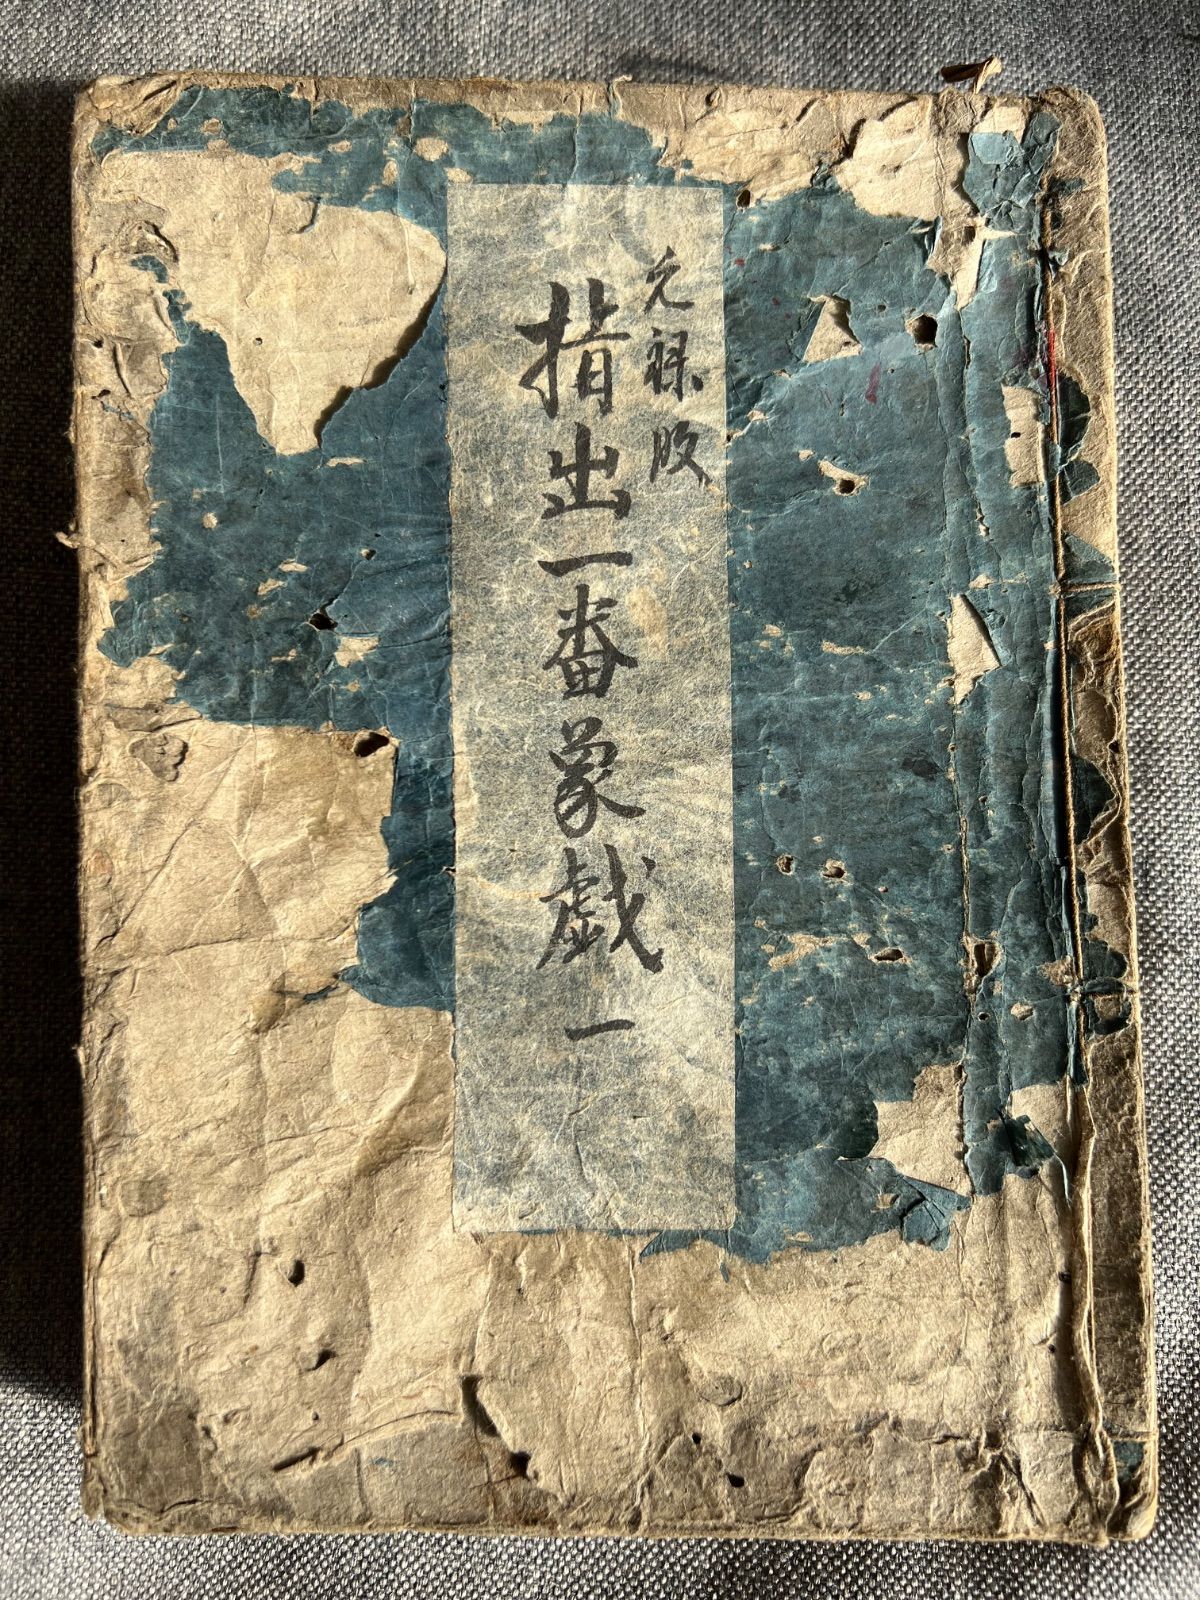 元禄版
指出一番象戯 一